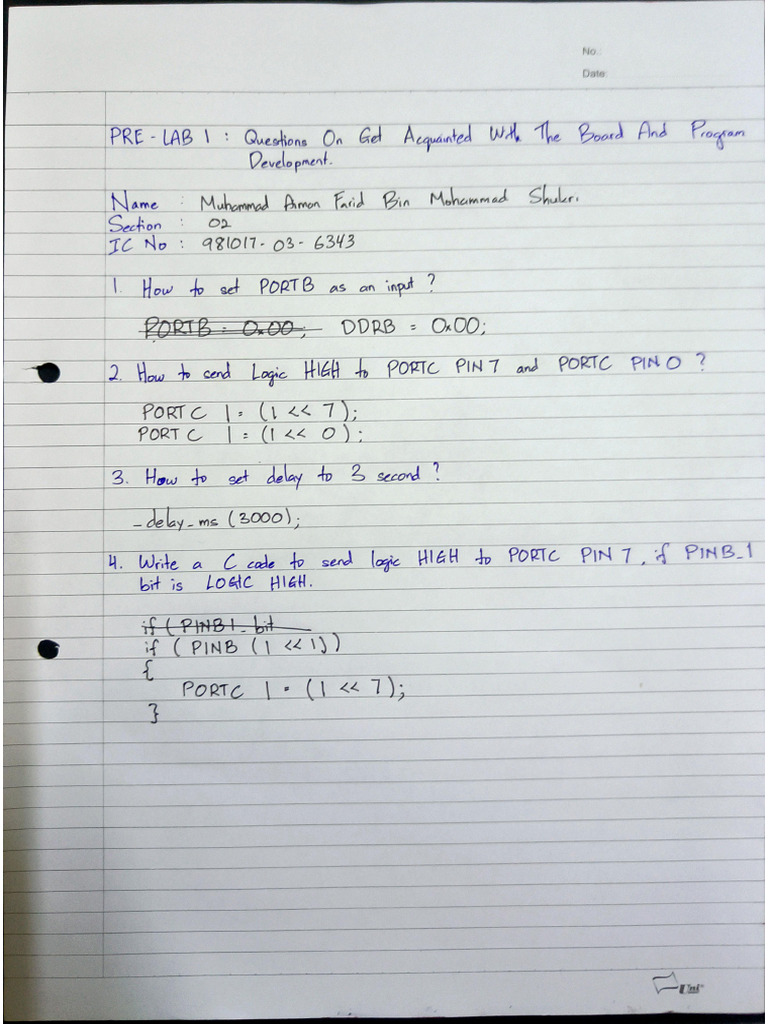 No.:
Date:
PRE - LAB 1 : Questions On Get Acquainted With The Board And Program
Development.
Name : Muhammad Arman Farid Bin Mohammad Shukri
Section : 02
IC No : 981017-03-6343
1. How to set PORTB as an input ?
PORTB = 0x00; DDRB = 0x00;
2. How to send Logic HIGH to PORTC PIN 7 and PORTC PIN 0 ?
PORTC |= (1 << 7);
PORTC |= (1 << 0);
3. How to set delay to 3 second ?
_delay_ms (3000);
4. Write a C code to send logic HIGH to PORTC PIN 7, if PINB_1
bit is LOGIC HIGH.
if ( PINB1_ bit
if ( PINB (1 << 1))
{
PORTC |= (1 << 7);
}
Uni